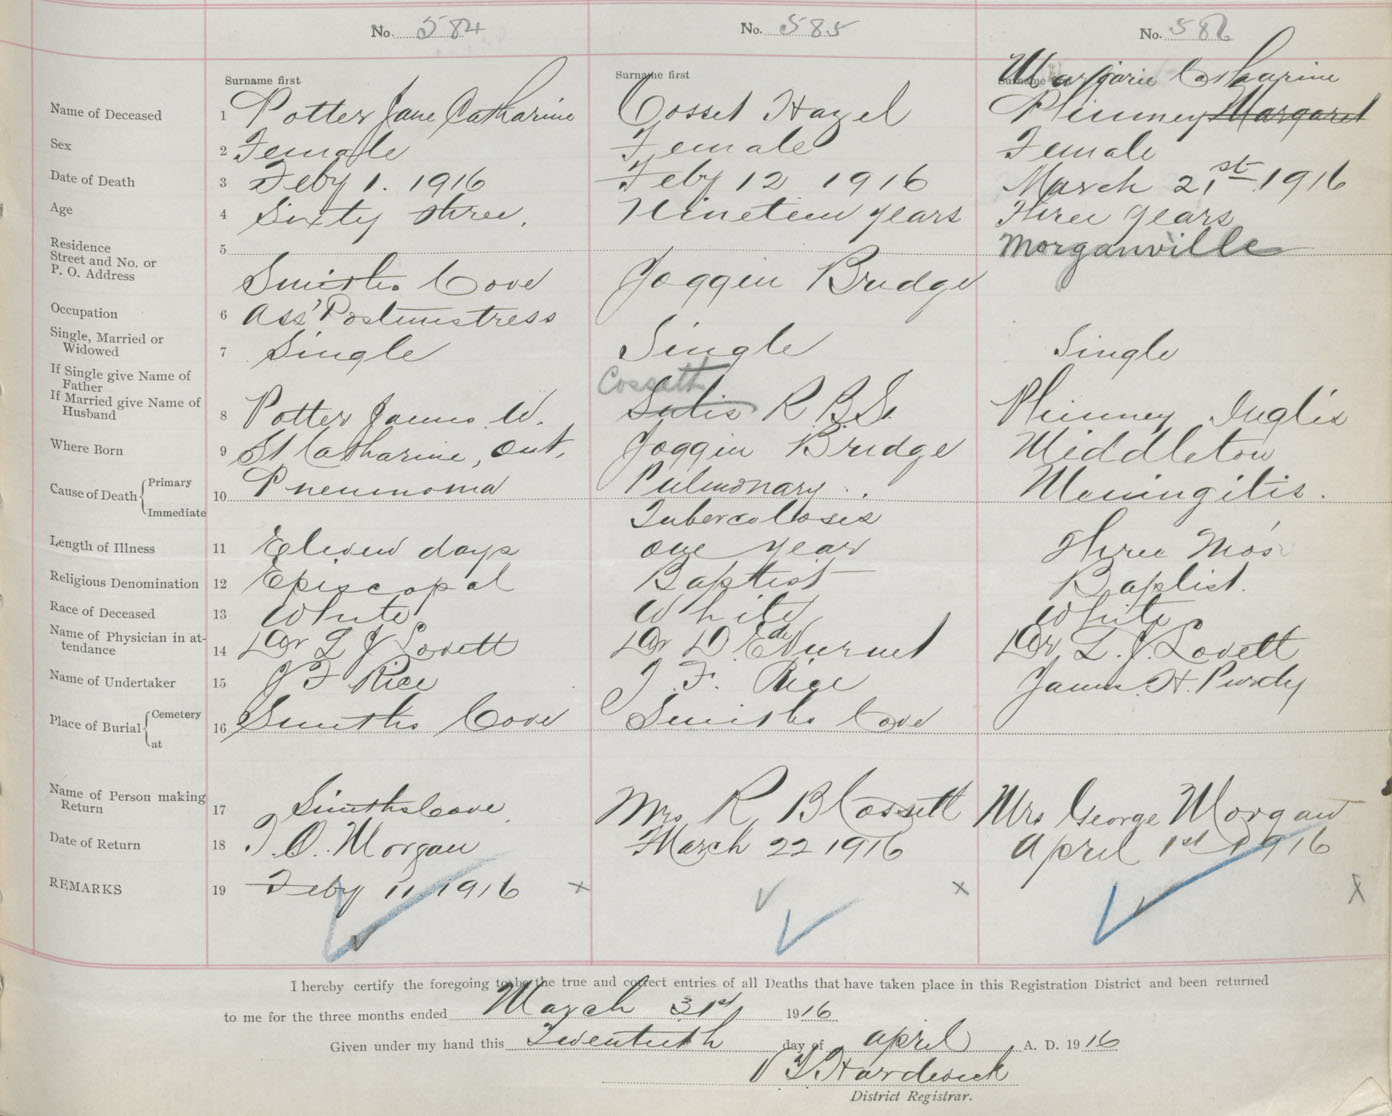 No. 584
No. 585
No. 586
Surname first
Surname first
Marjorie Catharine
Name of Deceased 1 Potter Jane Catharine
Cosset Hazel
Phinney Margaret
Sex 2 Female
Female
Female
Date of Death 3 Feby 1. 1916
Feby 12 1916
March 21st 1916
Age 4 Sixty three.
Nineteen years
Three years
Residence
Street and No. or
P. O. Address
5
Smiths Cove
Joggin Bridge
Morganville
Occupation 6 Ass' Postmistress
Single, Married or
Widowed
7 Single
Single
Single
If Single give Name of
Father
If Married give Name of
Husband
8 Potter James W.
Cossett
R. B. S.
Phinney Inglis
Where Born 9 St Catharine, Ont.
Joggin Bridge
Middleton
Cause of Death { Primary
Immediate
10 Pneumonia
Pulmonary
Tubercolosis
Meningitis.
Length of Illness 11 Eleven days
one year
Three Mos
Religious Denomination 12 Episcopal
Baptist
Baptist.
Race of Deceased 13 White
White
White
Name of Physician in at-
tendance
14 Dr L J Lovett
Dr D.
Dr L. J. Lovett
Name of Undertaker 15 J F Rice
J. F. Rice
James H. Purdy
Place of Burial { Cemetery
at
16 Smiths Cove
Smiths Cove
Name of Person making
Return
17 Smiths Cove.
Mrs R B Cossett
Mrs George Morgan
Date of Return 18 J. O. Morgan
March 22 1916
April 1st 1916
REMARKS 19 Feby 11 1916 x
x
x
I hereby certify the foregoing to be the true and correct entries of all Deaths that have taken place in this Registration District and been returned
to me for the three months ended March 31st 1916
Given under my hand this Twentieth day of April A. D. 1916
Hardwick
District Registrar.